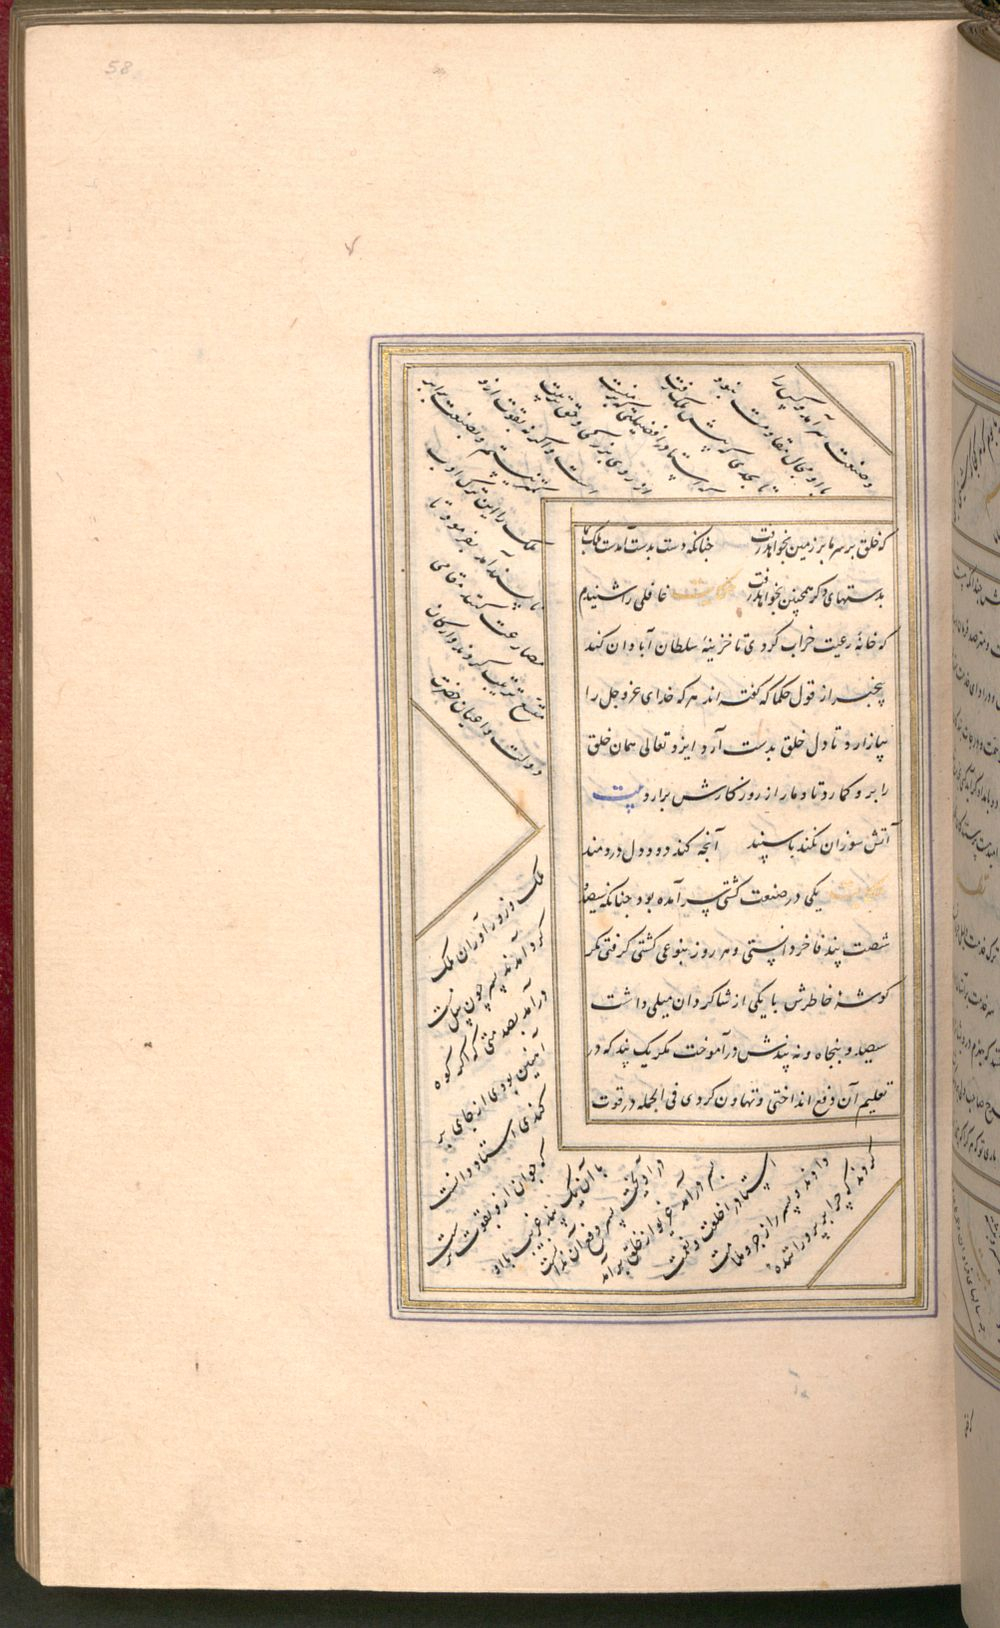 58
که خلق بر سر ما بر زمین بخواهد رفت چنانکه دست بدست آمدست ملک بما
بدستهای دکر همچنین بخواهد رفت حکایت غافلی را شنیدم
که خانهٔ رعیت خراب کردی تا خزینهٔ سلطان آبادان کند
بیخبر از قول حکما که گفته اند هر که خدای عزوجل را
بیازارد تا دل خلق بدست آرد ایزد تعالی همان خلق
را برو کمارد تا دمار از روزکارش برارد بیت
آتش سوزان نکند با سپند آنچه کند دود دل دردمند
حکایت یکی در صنعت کشتی بسر آمده بود چنانکه سیصد
شصت بند فاخر دانستی و هر روز بنوعی کشتی کرفتی مکر
کوشهٔ خاطرش با یکی از شاکردان میلی داشت
سیصد و پنجاه و نه بندش درآموخت مکر یک بند که در
تعلیم آن دفع انداختی و تهاون کردی فی الجمله در قوت
و صنعت بسر آمد و کس را
با او مجال مقاومت نبود
تا بحدی که پیش ملک گفت
که استاد را فضیلتی که بر منست
از روی بزرکی و حق تربیت
است و اکر نه بقوت ازو
کمتر نیستم و بصنعت برابر
ملک را این ترک ادب
پسند نیامد بفرمود تا
مصارعت کنند مقامی
متسع ترتیب کردند و ارکان
دولت و اعیان حضرت
ملک و زورآوران ملک
کرد آمدند پسر چون پیل مست
درآمد بصدمتی که اکر کوه
آهنین بودی از جای بر
کندی استاد دانست
که جوان ازو بقوت برترست
با آن یک بند غریب با او
درآویخت پسر دفع آن ندانست
بسر درآمد غریو از خلق برآمد
استاد را خلعت و نعمت
دادند و پسر را زجر و ملامت
کردند که چرا با پرورنده